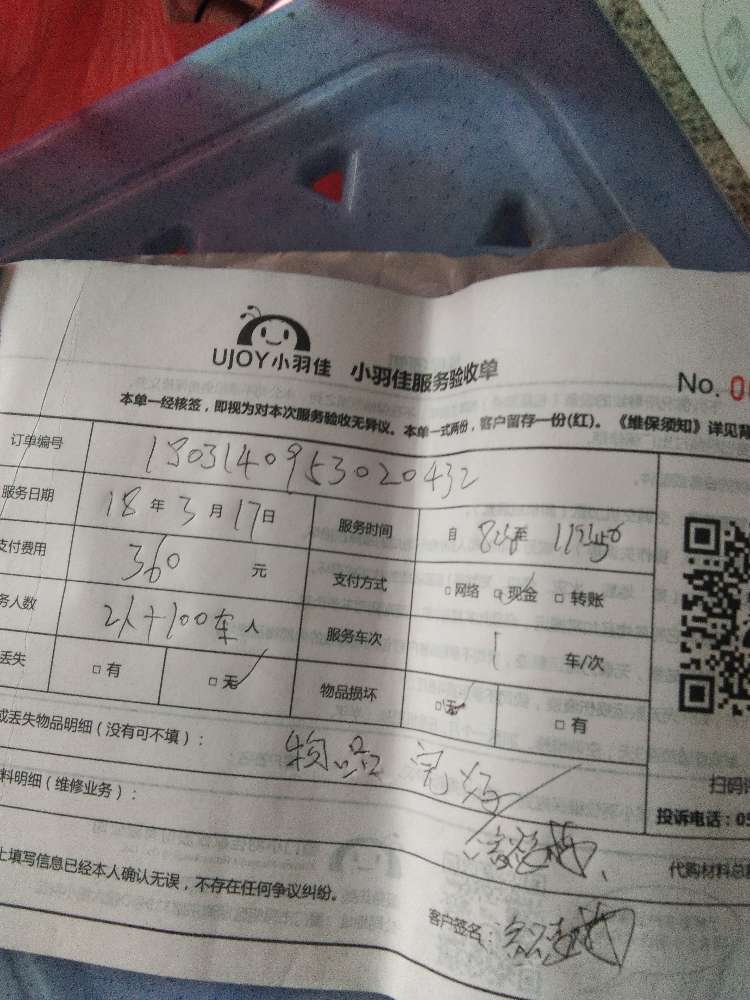 UJOY小羽佳 小羽佳服务验收单
No. 0
本单一经核签，即视为对本次服务验收无异议。本单一式两份，客户留存一份(红)。《维保须知》详见背
订单编号 1803140953020432
服务日期 18 年 3 月 17 日 服务时间 自 至
支付费用 360 元 支付方式 □网络 □现金 □转账
务人数 2人+100车 人 服务车次 1 车/次
丢失 □有 □无 物品损坏 □无 □有
或丢失物品明细（没有可不填）： 物品完好
料明细（维修业务）：
扫码
投诉电话：05
代购材料总
上填写信息已经本人确认无误，不存在任何争议纠纷。
客户签名：